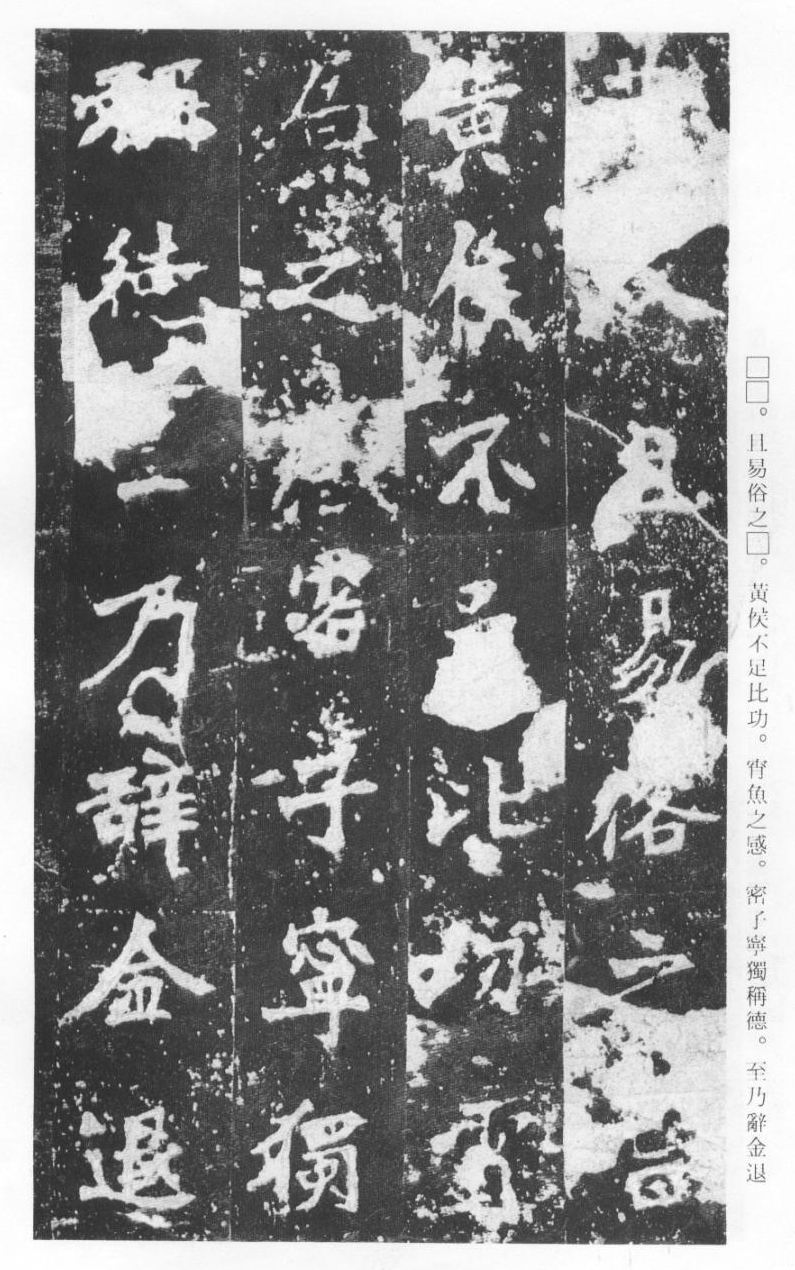 □□。且易俗之□。黃侯不足比功。宵魚之感。密子寧獨稱德。至乃辭金退
且易俗之
黃侯不足比功宵
魚之感密子寧獨
稱德至乃辭金退